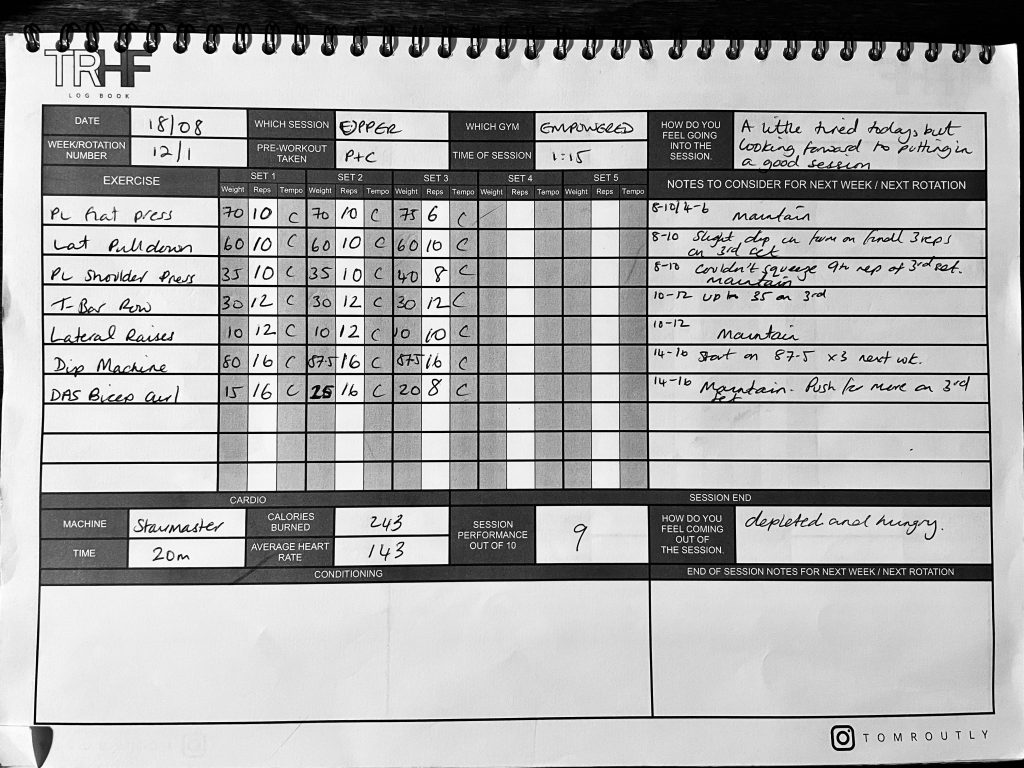 TRHF
LOG BOOK
DATE 18/08 WHICH SESSION UPPER WHICH GYM EMPOWERED HOW DO YOU FEEL GOING INTO THE SESSION. A little tired today, but
looking forward to putting in
a good session
WEEK/ROTATION NUMBER 12/1 PRE-WORKOUT TAKEN P+C TIME OF SESSION 1:15
EXERCISE SET 1 SET 2 SET 3 SET 4 SET 5 NOTES TO CONSIDER FOR NEXT WEEK / NEXT ROTATION
Weight Reps Tempo Weight Reps Tempo Weight Reps Tempo Weight Reps Tempo Weight Reps Tempo
PL Flat Press 70 10 C 70 10 C 75 6 C 8-10/4-6 maintain
Lat Pulldown 60 10 C 60 10 C 60 10 C 8-10 Slight dip in form on final 3 reps
on 3rd set
PL Shoulder Press 35 10 C 35 10 C 40 8 C 8-10 Couldn't squeeze 9th rep of 3rd set.
maintain
T-Bar Row 30 12 C 30 12 C 30 12 C 10-12 up to 35 on 3rd
Lateral Raises 10 12 C 10 12 C 10 10 C 10-12 Maintain
Dip Machine 80 16 C 87.5 16 C 87.5 16 C 14-16 Start on 87.5 x3 next wk.
DAS Bicep Curl 15 16 C 16 C 20 8 C 14-16 Maintain. Push for more on 3rd
set
CARDIO SESSION END
MACHINE Stairmaster CALORIES BURNED 243 SESSION PERFORMANCE OUT OF 10 9 HOW DO YOU FEEL COMING OUT OF THE SESSION. depleted and hungry.
TIME 20m AVERAGE HEART RATE 143
CONDITIONING END OF SESSION NOTES FOR NEXT WEEK / NEXT ROTATION
TOMROUTLY